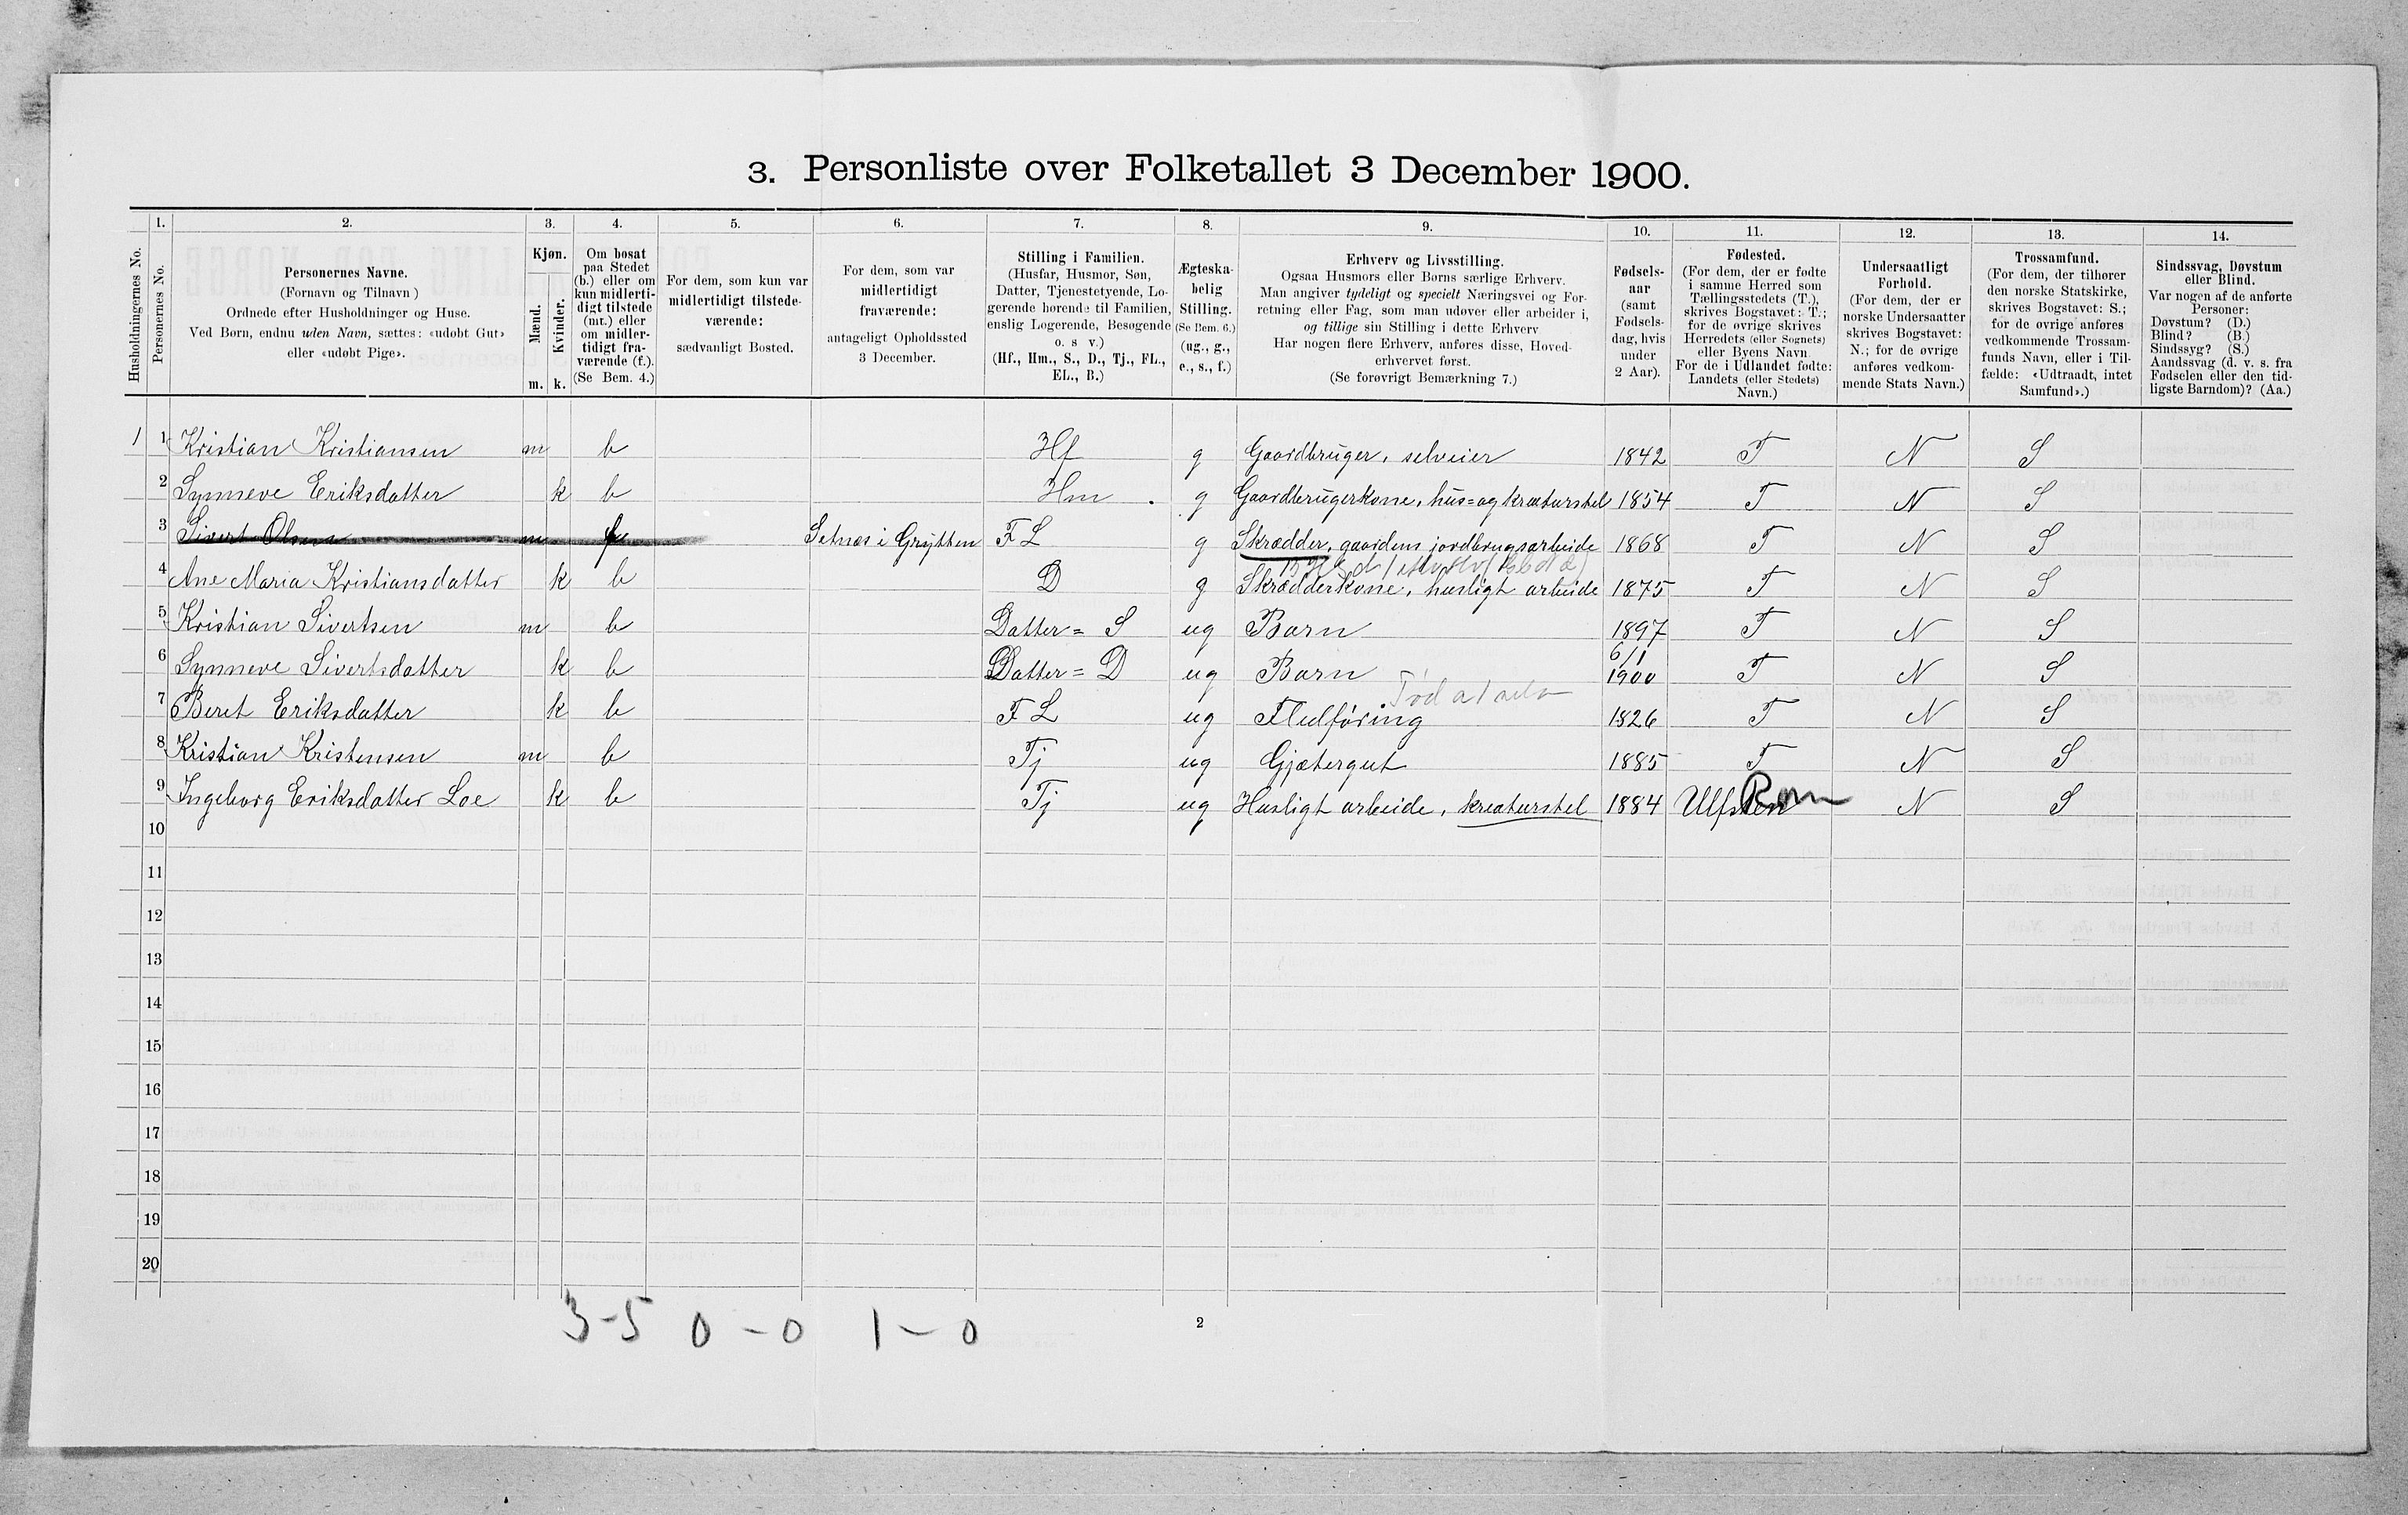 3. Personliste over Folketallet 3 December 1900.
1. 2. 3. 4. 5. 6. 7. 8. 9. 10. 11. 12. 13. 14.
Husholdningernes No.
Personernes No.
Personernes Navne.
(Fornavn og Tilnavn)
Ordnede efter Husholdninger og Huse.
Ved Børn, endnu uden Navn, sættes: «udøbt Gut»
eller «udøbt Pige».
Kjøn.
Mænd.
Kvinder.
m. k.
Om bosat
paa Stedet
(b.) eller om
kun midlerti-
digt tilstede
(mt.) eller
om midler-
tidigt fra-
værende (f.).
(Se Bem. 4.)
For dem, som kun var
midlertidigt tilstede-
værende:
sædvanligt Bosted.
For dem, som var
midlertidigt
fraværende:
antageligt Opholdssted
3 December.
Stilling i Familien.
(Husfar, Husmor, Søn,
Datter, Tjenestetyende, Lo-
gerende hørende til Familien,
enslig Logerende, Besøgende
o. s v.)
(Hf., Hm., S., D., Tj., FL.,
EL., B.)
Ægteska-
belig
Stilling.
(Se Bem. 6.)
(ug., g.,
e., s., f.)
Erhverv og Livsstilling.
Ogsaa Husmors eller Børns særlige Erhverv.
Man angiver tydeligt og specielt Næringsvei og For-
retning eller Fag, som man udøver eller arbeider i,
og tillige sin Stilling i dette Erhverv
Har nogen flere Erhverv, anføres disse, Hoved-
erhvervet først.
(Se forøvrigt Bemærkning 7.)
Fødsels-
aar
(samt
Fødsels-
dag, hvis
under
2 Aar).
Fødested.
(For dem, der er fødte
i samme Herred som
Tællingsstedets (T.),
skrives Bogstavet: T.;
for de øvrige skrives
Herredets (eller Sognets)
eller Byens Navn
For de i Udlandet fødte:
Landets (eller Stedets)
Navn.)
Undersaatligt
Forhold.
(For dem, der er
norske Undersaatter
skrives Bogstavet:
N.; for de øvrige
anføres vedkom-
mende Stats Navn.)
Trossamfund.
(For dem, der tilhører
den norske Statskirke,
skrives Bogstavet: S.;
for de øvrige anføres
vedkommende Trossam-
funds Navn, eller i Til-
fælde: «Udtraadt, intet
Samfund».)
Sindssvag, Døvstum
eller Blind.
Var nogen af de anførte
Personer:
Døvstum? (D.)
Blind? (B.)
Sindssyg? (S.)
Aandssvag (d. v. s. fra
Fødselen eller den tid-
ligste Barndom)? (Aa.)
1 1 Kristian Kristiansen m b Hf g Gaardbruger, selveier 1842 T N S
2 Synneve Eriksdatter k b Hm g Gaardbrugerkone, hus=og kreaturstel 1854 T N S
3 Sivert Olsen m f Setnæs i Grytten FL g Skrædder, gaardens jordbrugsarbeide 1868 T N S
4 Ane Maria Kristiansdatter k b D g Skrædderkone, husligt arbeide 1875 T N S
5 Kristian Sivertsen m b Datter= S ug Barn 1897 T N S
6 Synneve Sivertsdatter k b Datter= D ug Barn 6/1 1900 T N S
7 Beret Eriksdatter k b FL ug Fledføring 1826 T N S
8 Kristian Kristensen m b Tj ug Gjætergut 1885 T N S
9 Ingeborg Eriksdatter Loe k b Tj ug Husligt arbeide, kreaturstel 1884 N S
10
11
12
13
14
15
16
17
18
19
20
3-5 0-0 1-0
2